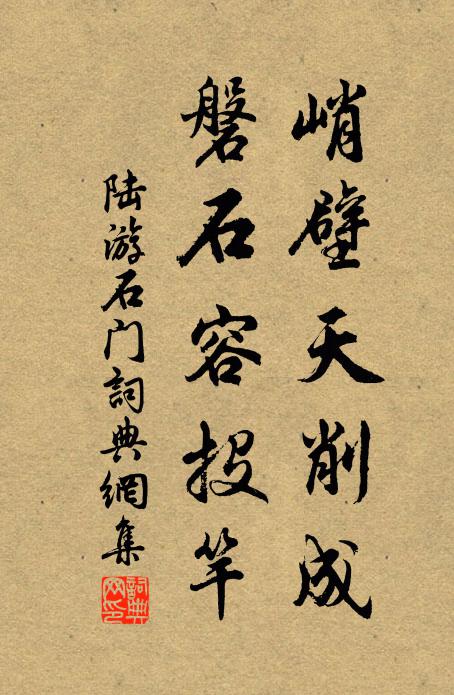 峭壁天削成
磐石容投竿
陆游石门詞典網集
詞典网印